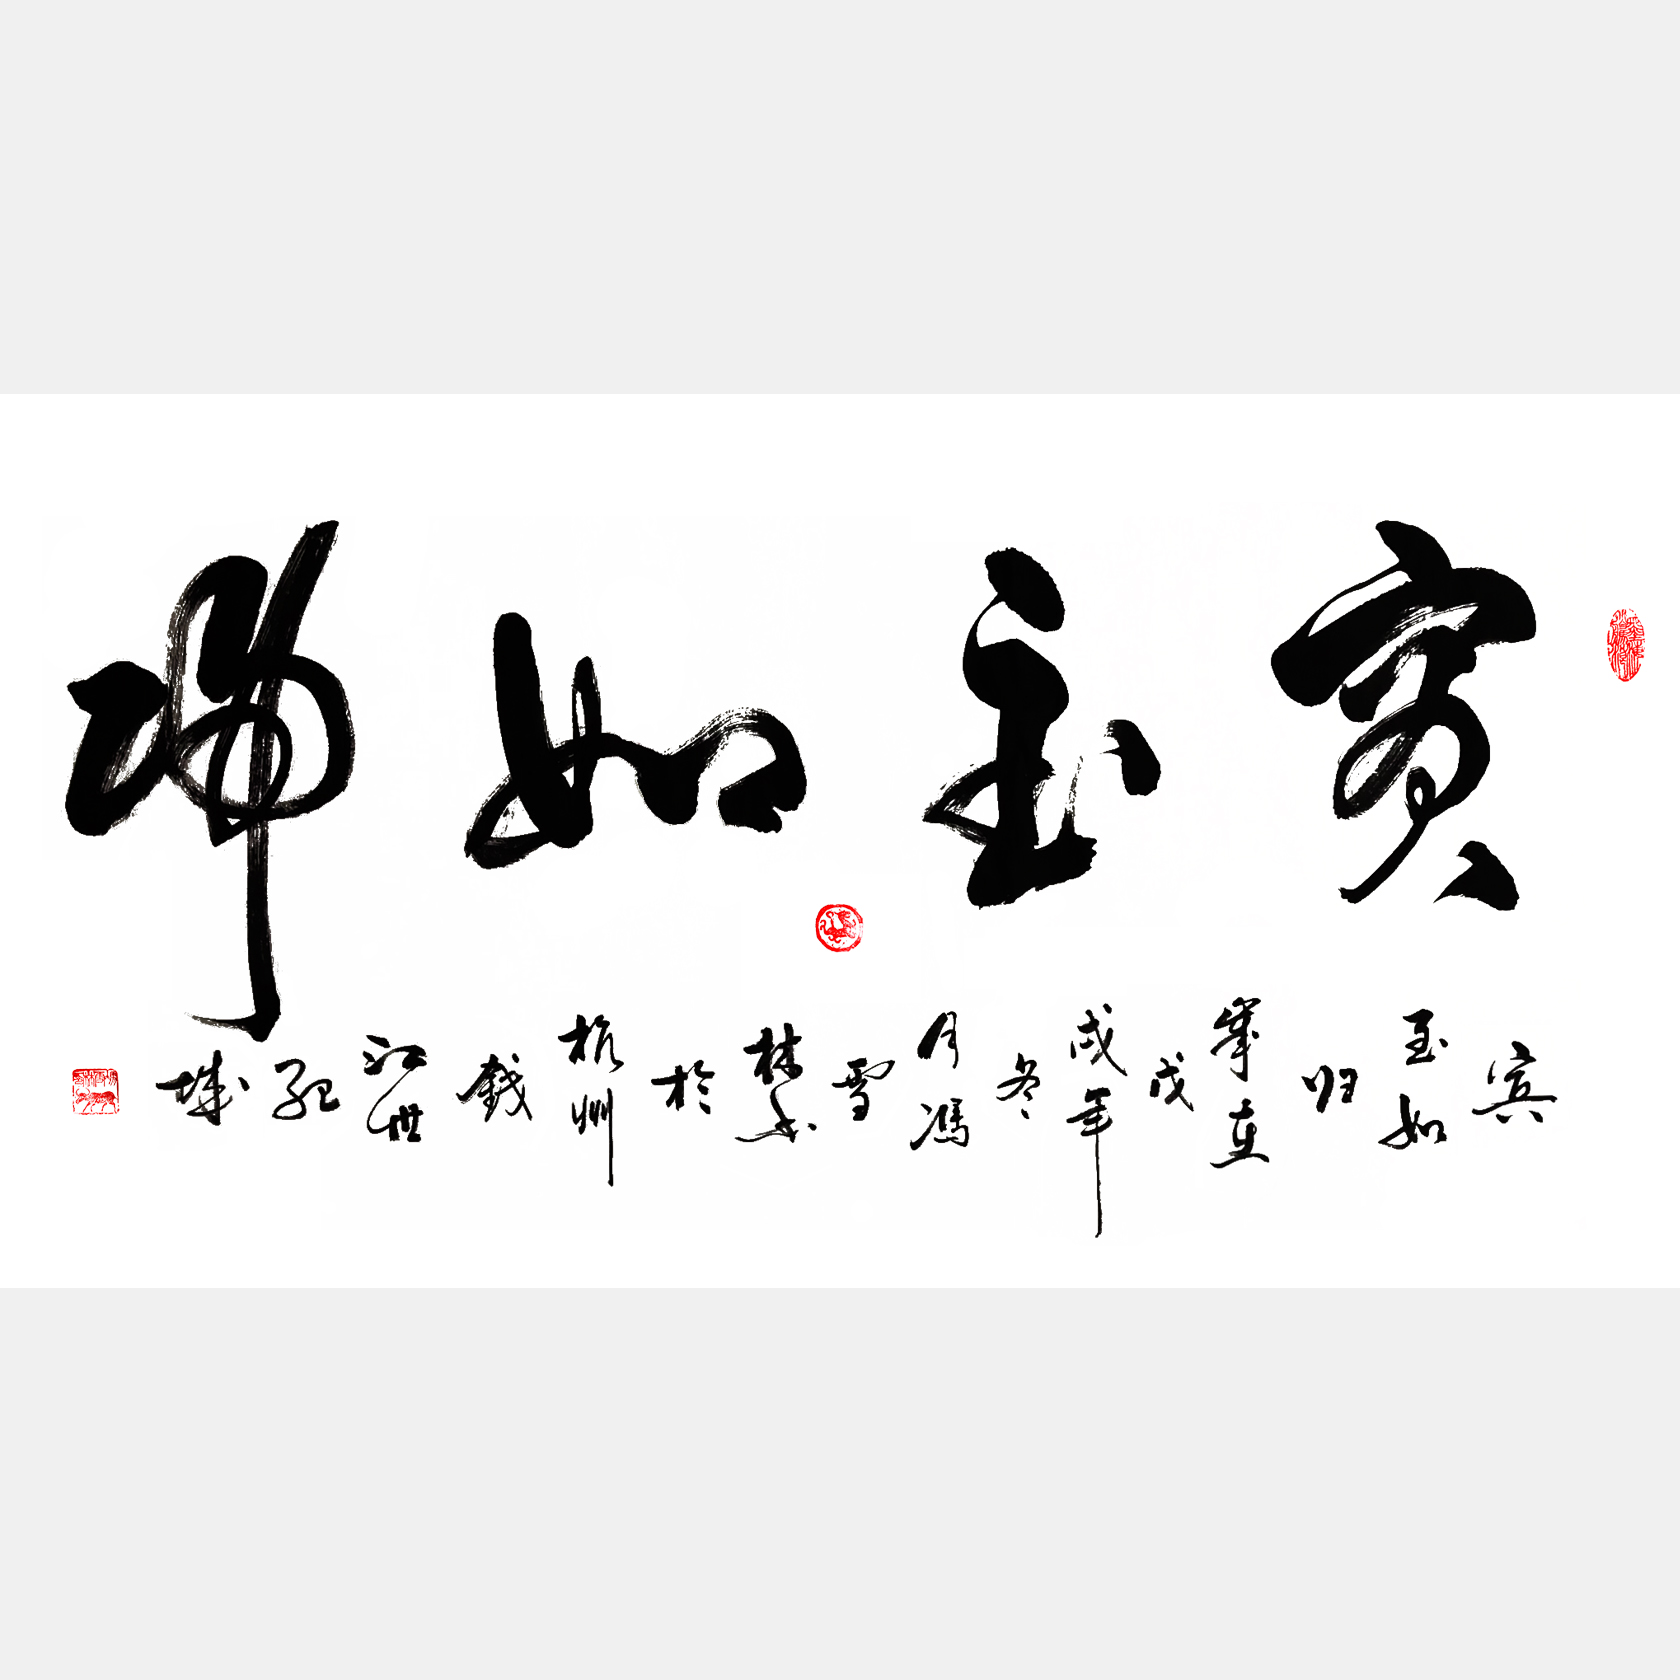 賓至如歸
宾至如归
岁在戊戌年冬月冯雪林书于杭州钱江世纪城